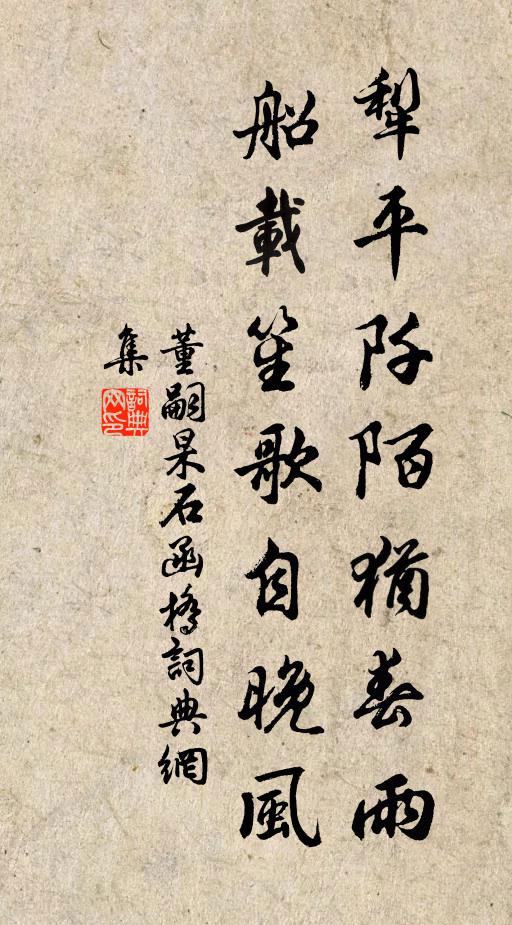 犁平阡陌猶春雨
船載笙歌自晚風
董嗣杲石函橋詞典網
集
詞典網印